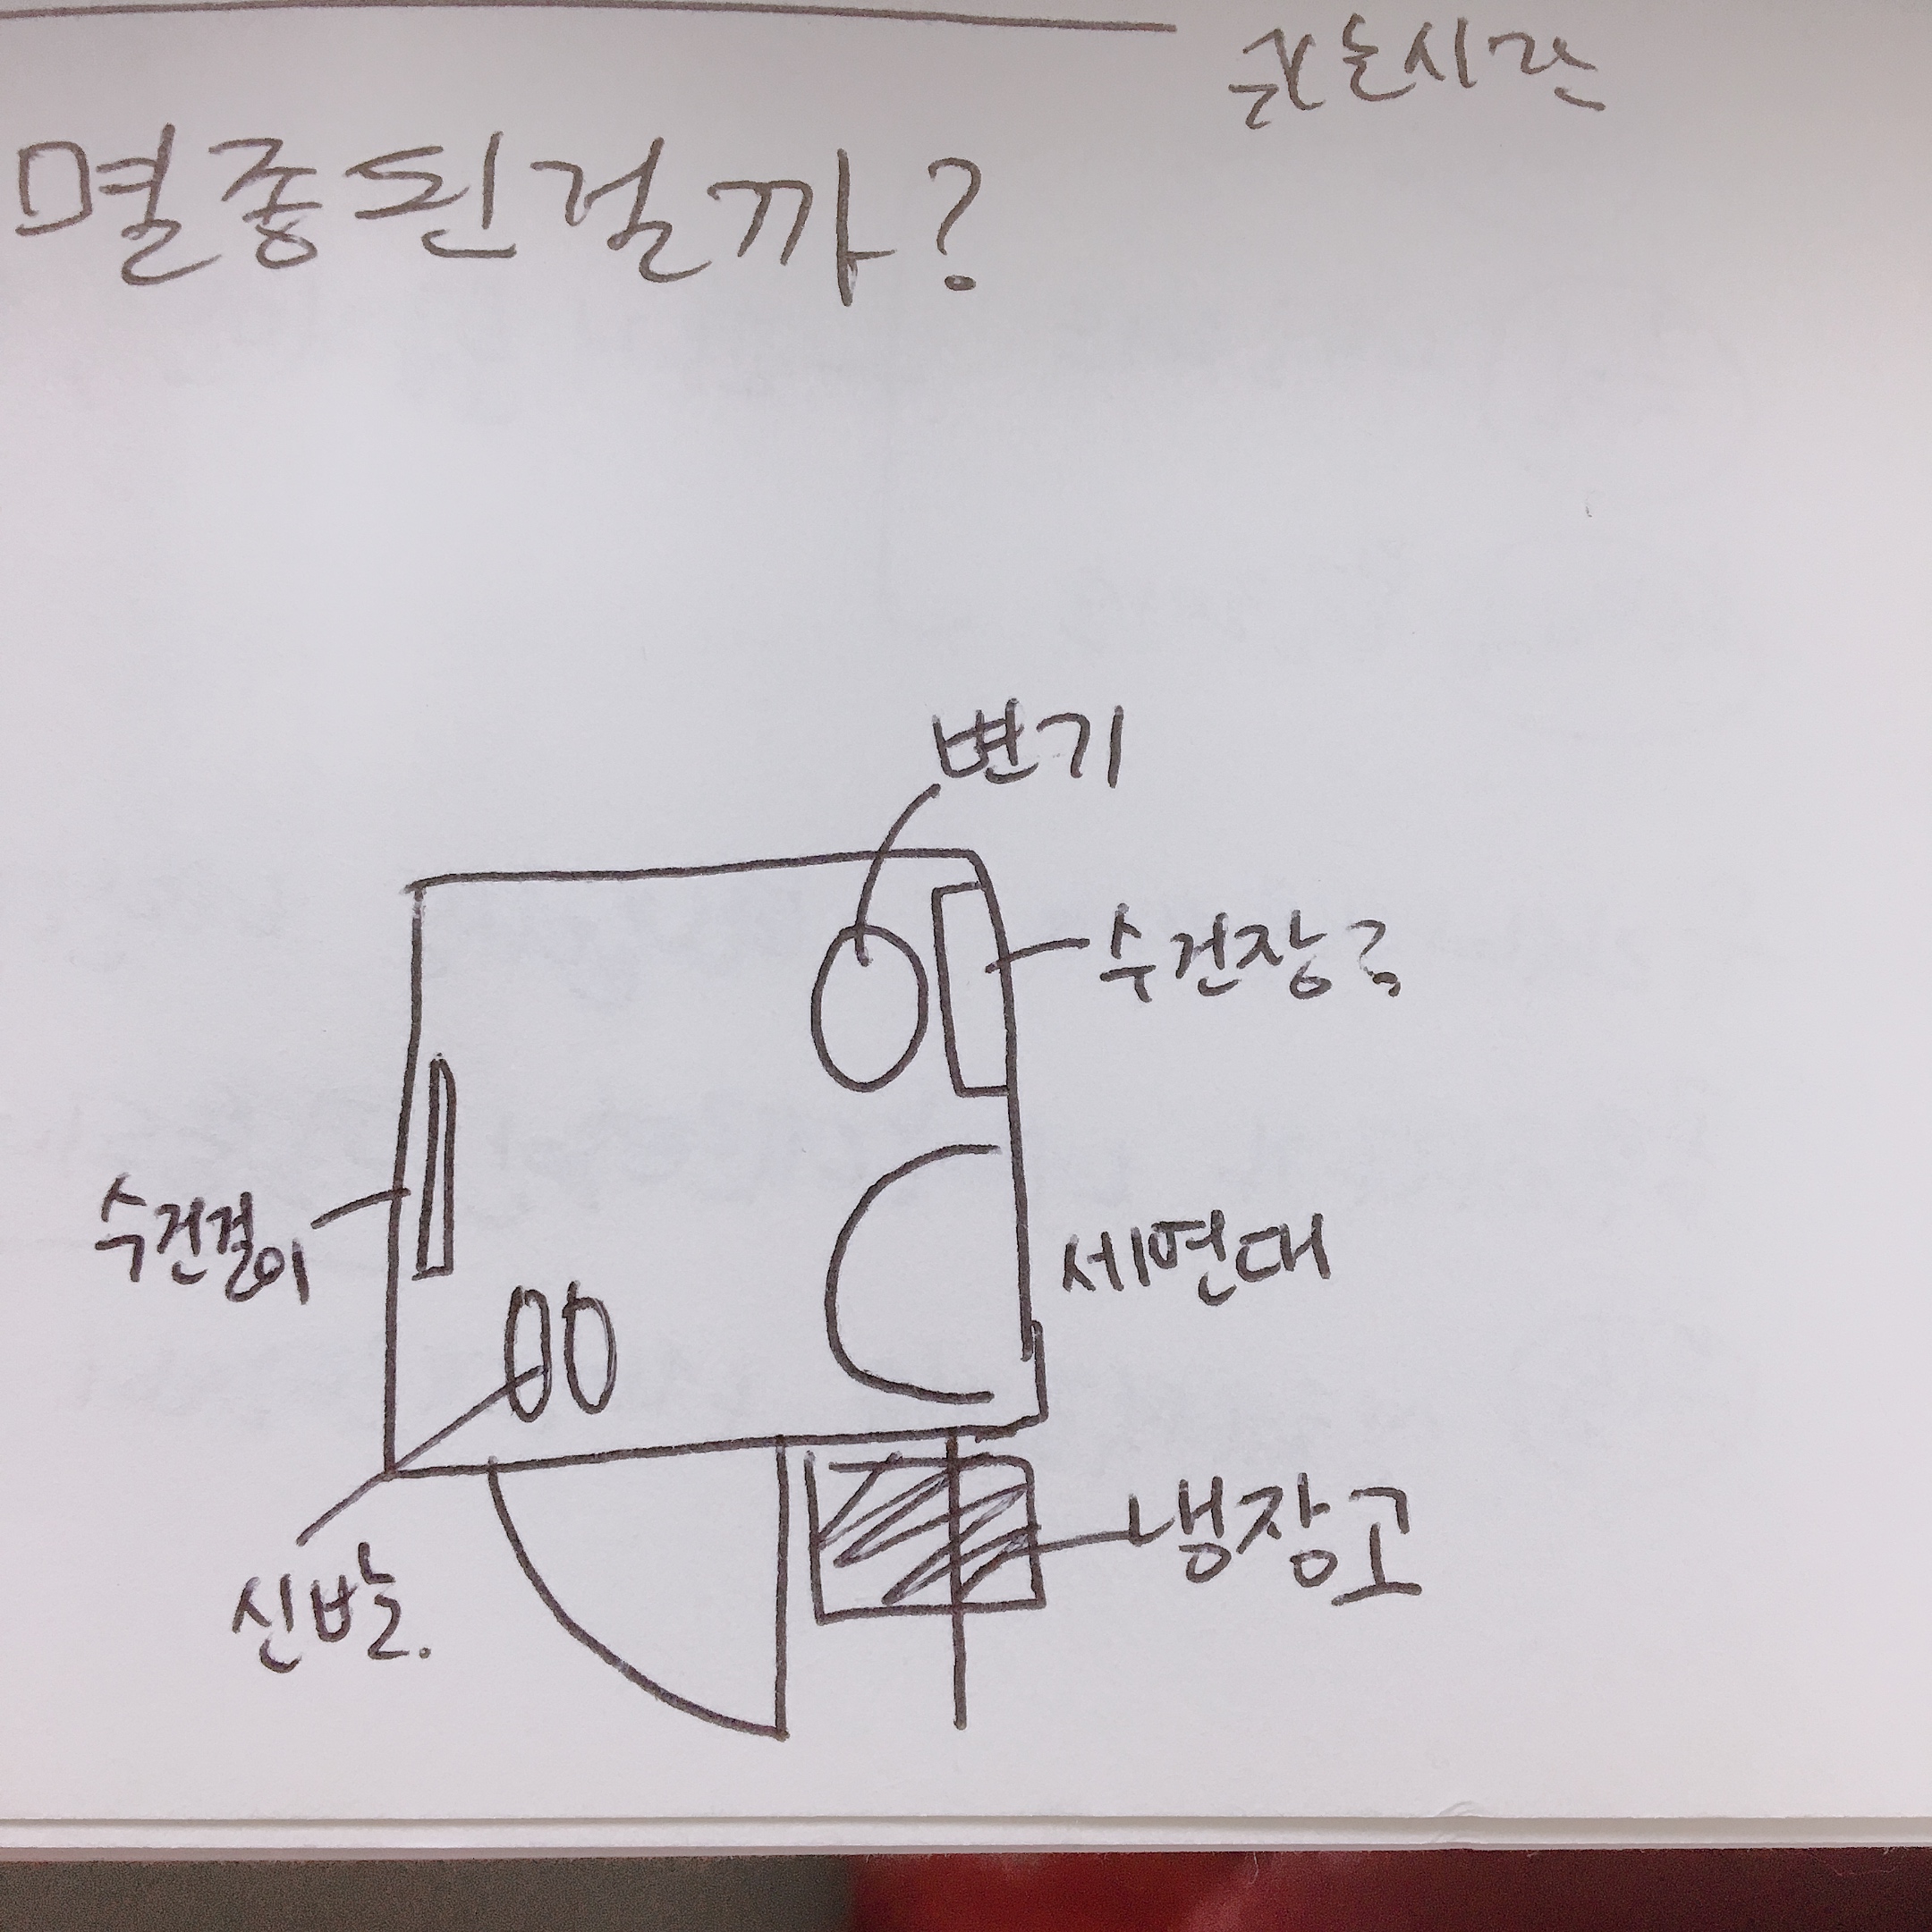 쉬는시간
멸종된걸까?
변기
수건장
수건걸이
세면대
냉장고
신발.